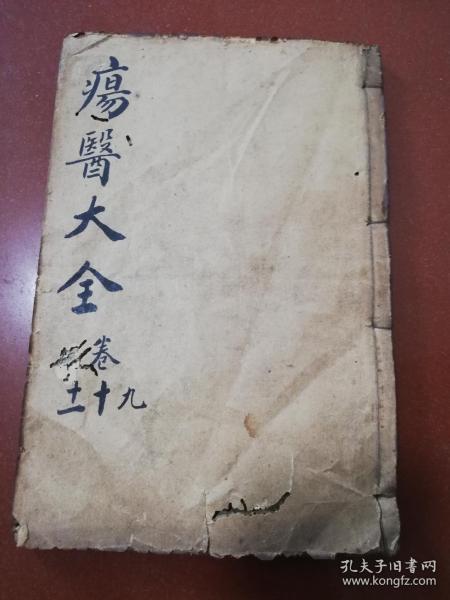 瘍醫大全
卷
九 十 十一
孔夫子旧书网
www.kongfz.com